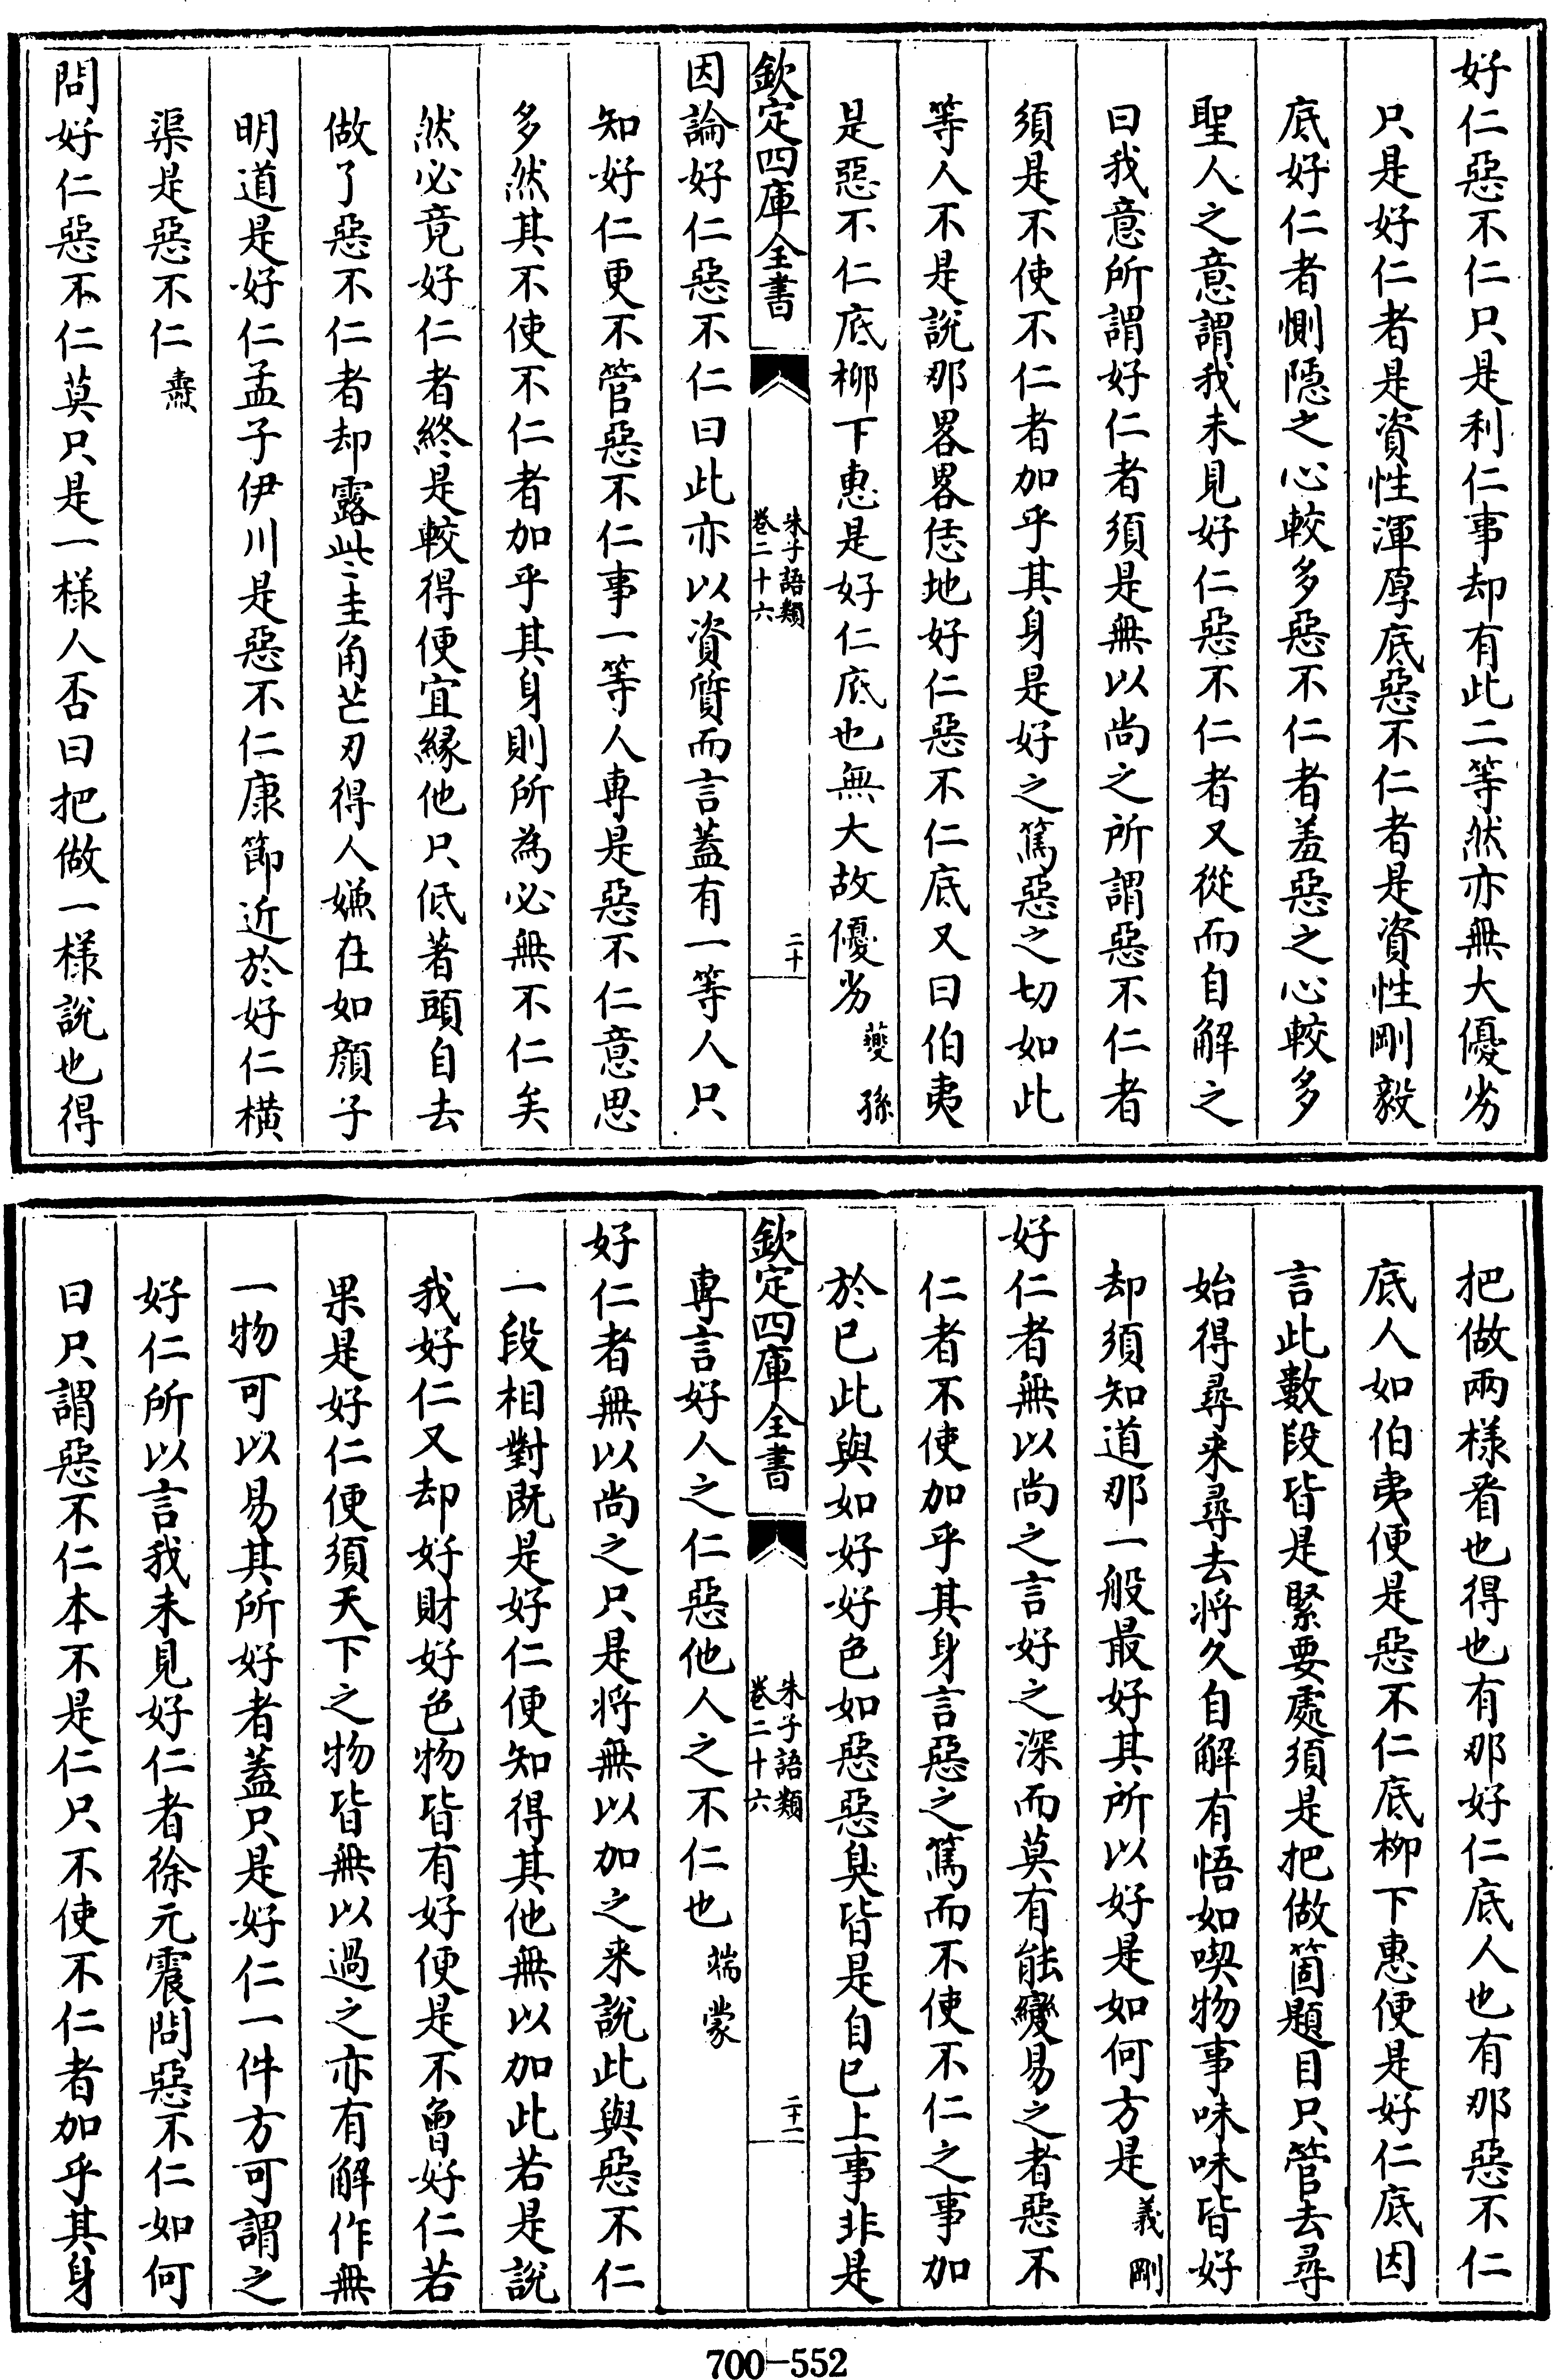 好仁惡不仁只是利仁事却有此二等然亦無大優劣
只是好仁者是資性渾厚底惡不仁者是資性剛毅
底好仁者惻隱之心較多惡不仁者羞惡之心較多
聖人之意謂我未見好仁惡不仁者又從而自解之
曰我意所謂好仁者須是無以尚之所謂惡不仁者
須是不使不仁者加乎其身是好之篤惡之切如此
等人不是說那畧畧恁地好仁惡不仁底又曰伯夷
是惡不仁底柳下惠是好仁底也無大故優劣 蘷孫
欽定四庫全書
朱子語類
卷二十六
二十
因論好仁惡不仁曰此亦以資質而言蓋有一等人只
知好仁更不管惡不仁事一等人專是惡不仁意思
多然其不使不仁者加乎其身則所為必無不仁矣
然必竟好仁者終是較得便宜緣他只低著頭自去
做了惡不仁者却露些圭角芒刃得人嫌在如顏子
明道是好仁孟子伊川是惡不仁康節近於好仁橫
渠是惡不仁 燾
問好仁惡不仁莫只是一樣人否曰把做一樣說也得
把做兩樣看也得也有那好仁底人也有那惡不仁
底人如伯夷便是惡不仁底柳下惠便是好仁底因
言此數段皆是緊要處須是把做箇題目只管去尋
始得尋来尋去將久自解有悟如喫物事味味皆好
却須知道那一般最好其所以好是如何方是 義剛
好仁者無以尚之言好之深而莫有能變易之者惡不
仁者不使加乎其身言惡之篤而不使不仁之事加
於已此與如好好色如惡惡臭皆是自已上事非是
欽定四庫全書
朱子語類
卷二十六
二十一
專言好人之仁惡他人之不仁也 端蒙
好仁者無以尚之只是將無以加之来說此與惡不仁
一段相對既是好仁便知得其他無以加此若是說
我好仁又却好財好色物皆有好便是不曾好仁若
果是好仁便須天下之物皆無以過之亦有解作無
一物可以易其所好者蓋只是好仁一件方可謂之
好仁所以言我未見好仁者徐元震問惡不仁如何
曰只謂惡不仁本不是仁只不使不仁者加乎其身
700-552